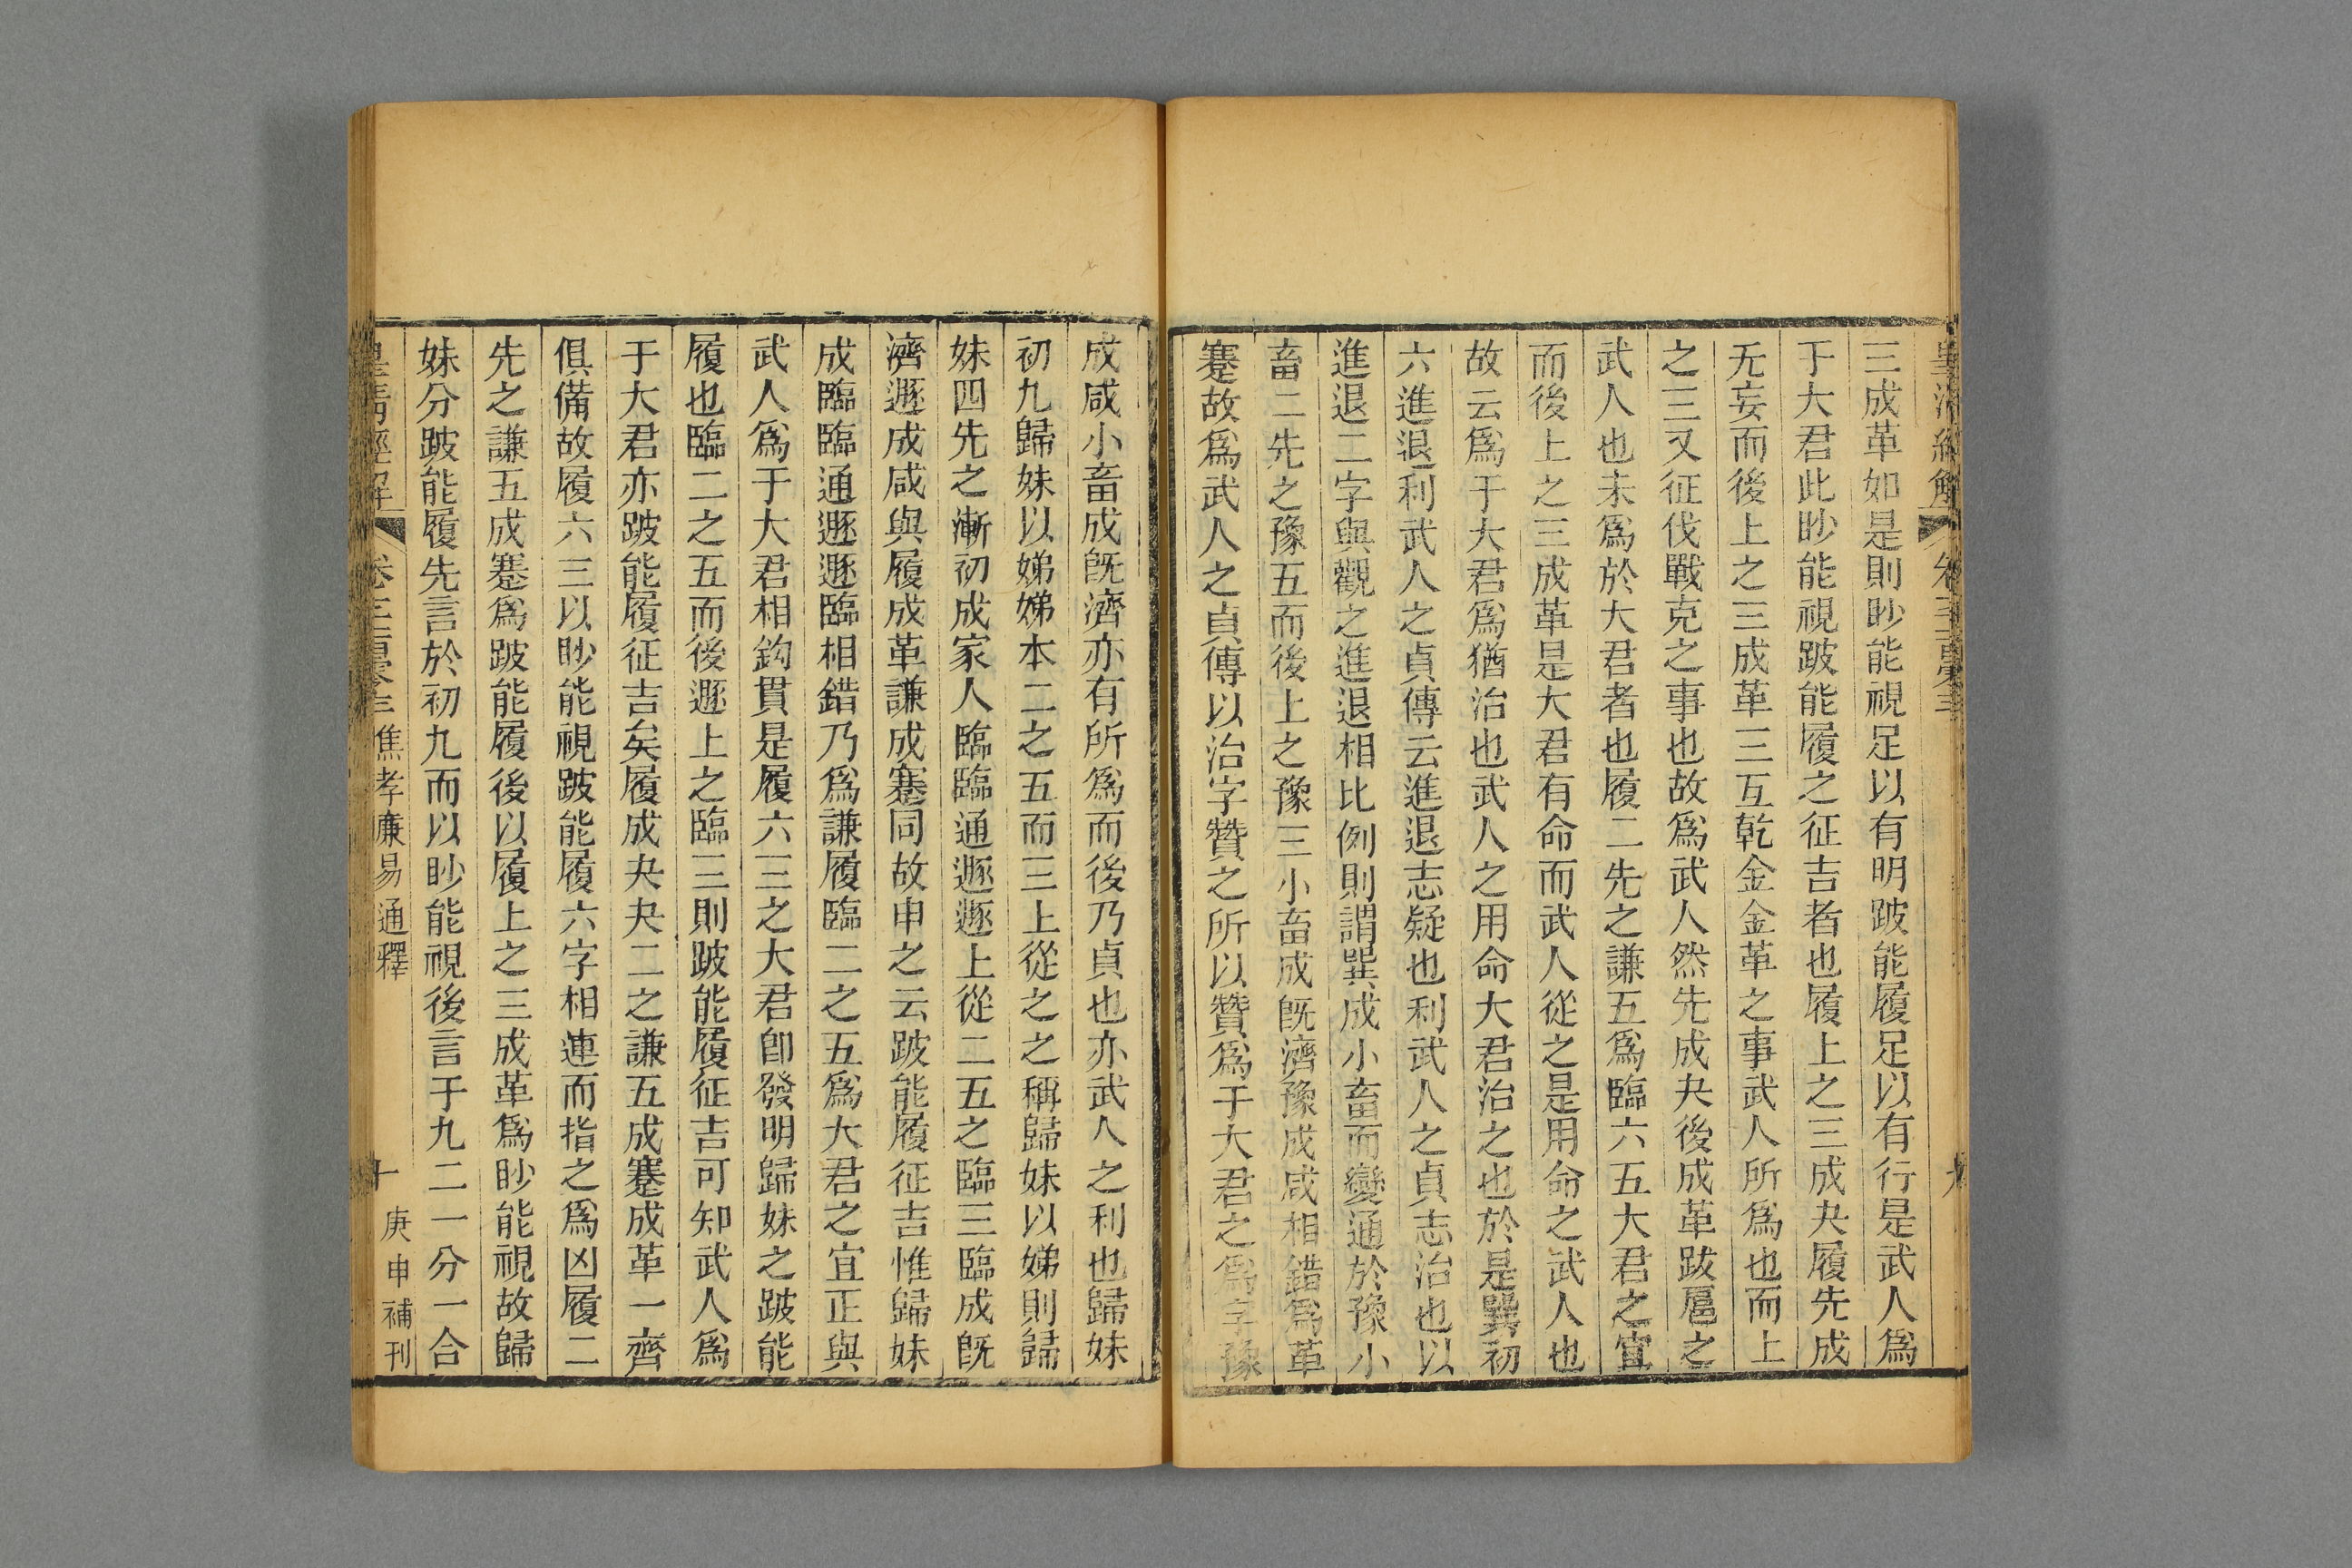 三成革如是則眇能視足以有明跛能履足以有行是武人爲
于大君此眇能視跛能履之征吉者也履上之三成夬履先成
无妄而後上之三成革三互乾金金革之事武人所爲也而上
之三又征伐戰克之事也故爲武人然先成夬後成革跋扈之
武人也未爲於大君者也履二先之謙五爲臨六五大君之宜
而後上之三成革是大君有命而武人從之是用命之武人也
故云爲于大君爲猶治也武人之用命大君治之也於是巽初
六進退利武人之貞傳云進退志疑也利武人之貞志治也以
進退二字與觀之進退相比例則謂巽成小畜而變通於豫小
畜二先之豫五而後上之豫三小畜成既濟豫成咸相錯爲革
蹇故爲武人之貞傳以治字贊之所以贊爲于大君之爲字豫
成咸小畜成旣濟亦有所爲而後乃貞也亦武人之利也歸妹
初九歸妹以娣娣本二之五而三上從之之稱歸妹以娣則歸
妹四先之漸初成家人臨臨通遯遯上從二五之臨三臨成旣
濟遯成咸與履成革謙成蹇同故申之云跛能履征吉惟歸妹
成臨臨通遯遯臨相錯乃爲謙履臨二之五爲大君之宜正與
武人爲于大君相鈎貫是履六三之大君卽發明歸妹之跛能
履也臨二之五而後遯上之臨三則跛能履征吉可知武人爲
于大君亦跛能履征吉矣履成夬夬二之謙五成蹇成革一齊
俱備故履六三以眇能視跛能履六字相連而指之爲凶履二
先之謙五成蹇爲跛能履後以履上之三成革爲眇能視故歸
妹分跛能履先言於初九而以眇能視後言于九二一分一合
皇清經解 卷三 焦孝廉易通釋 十 庚申補刊